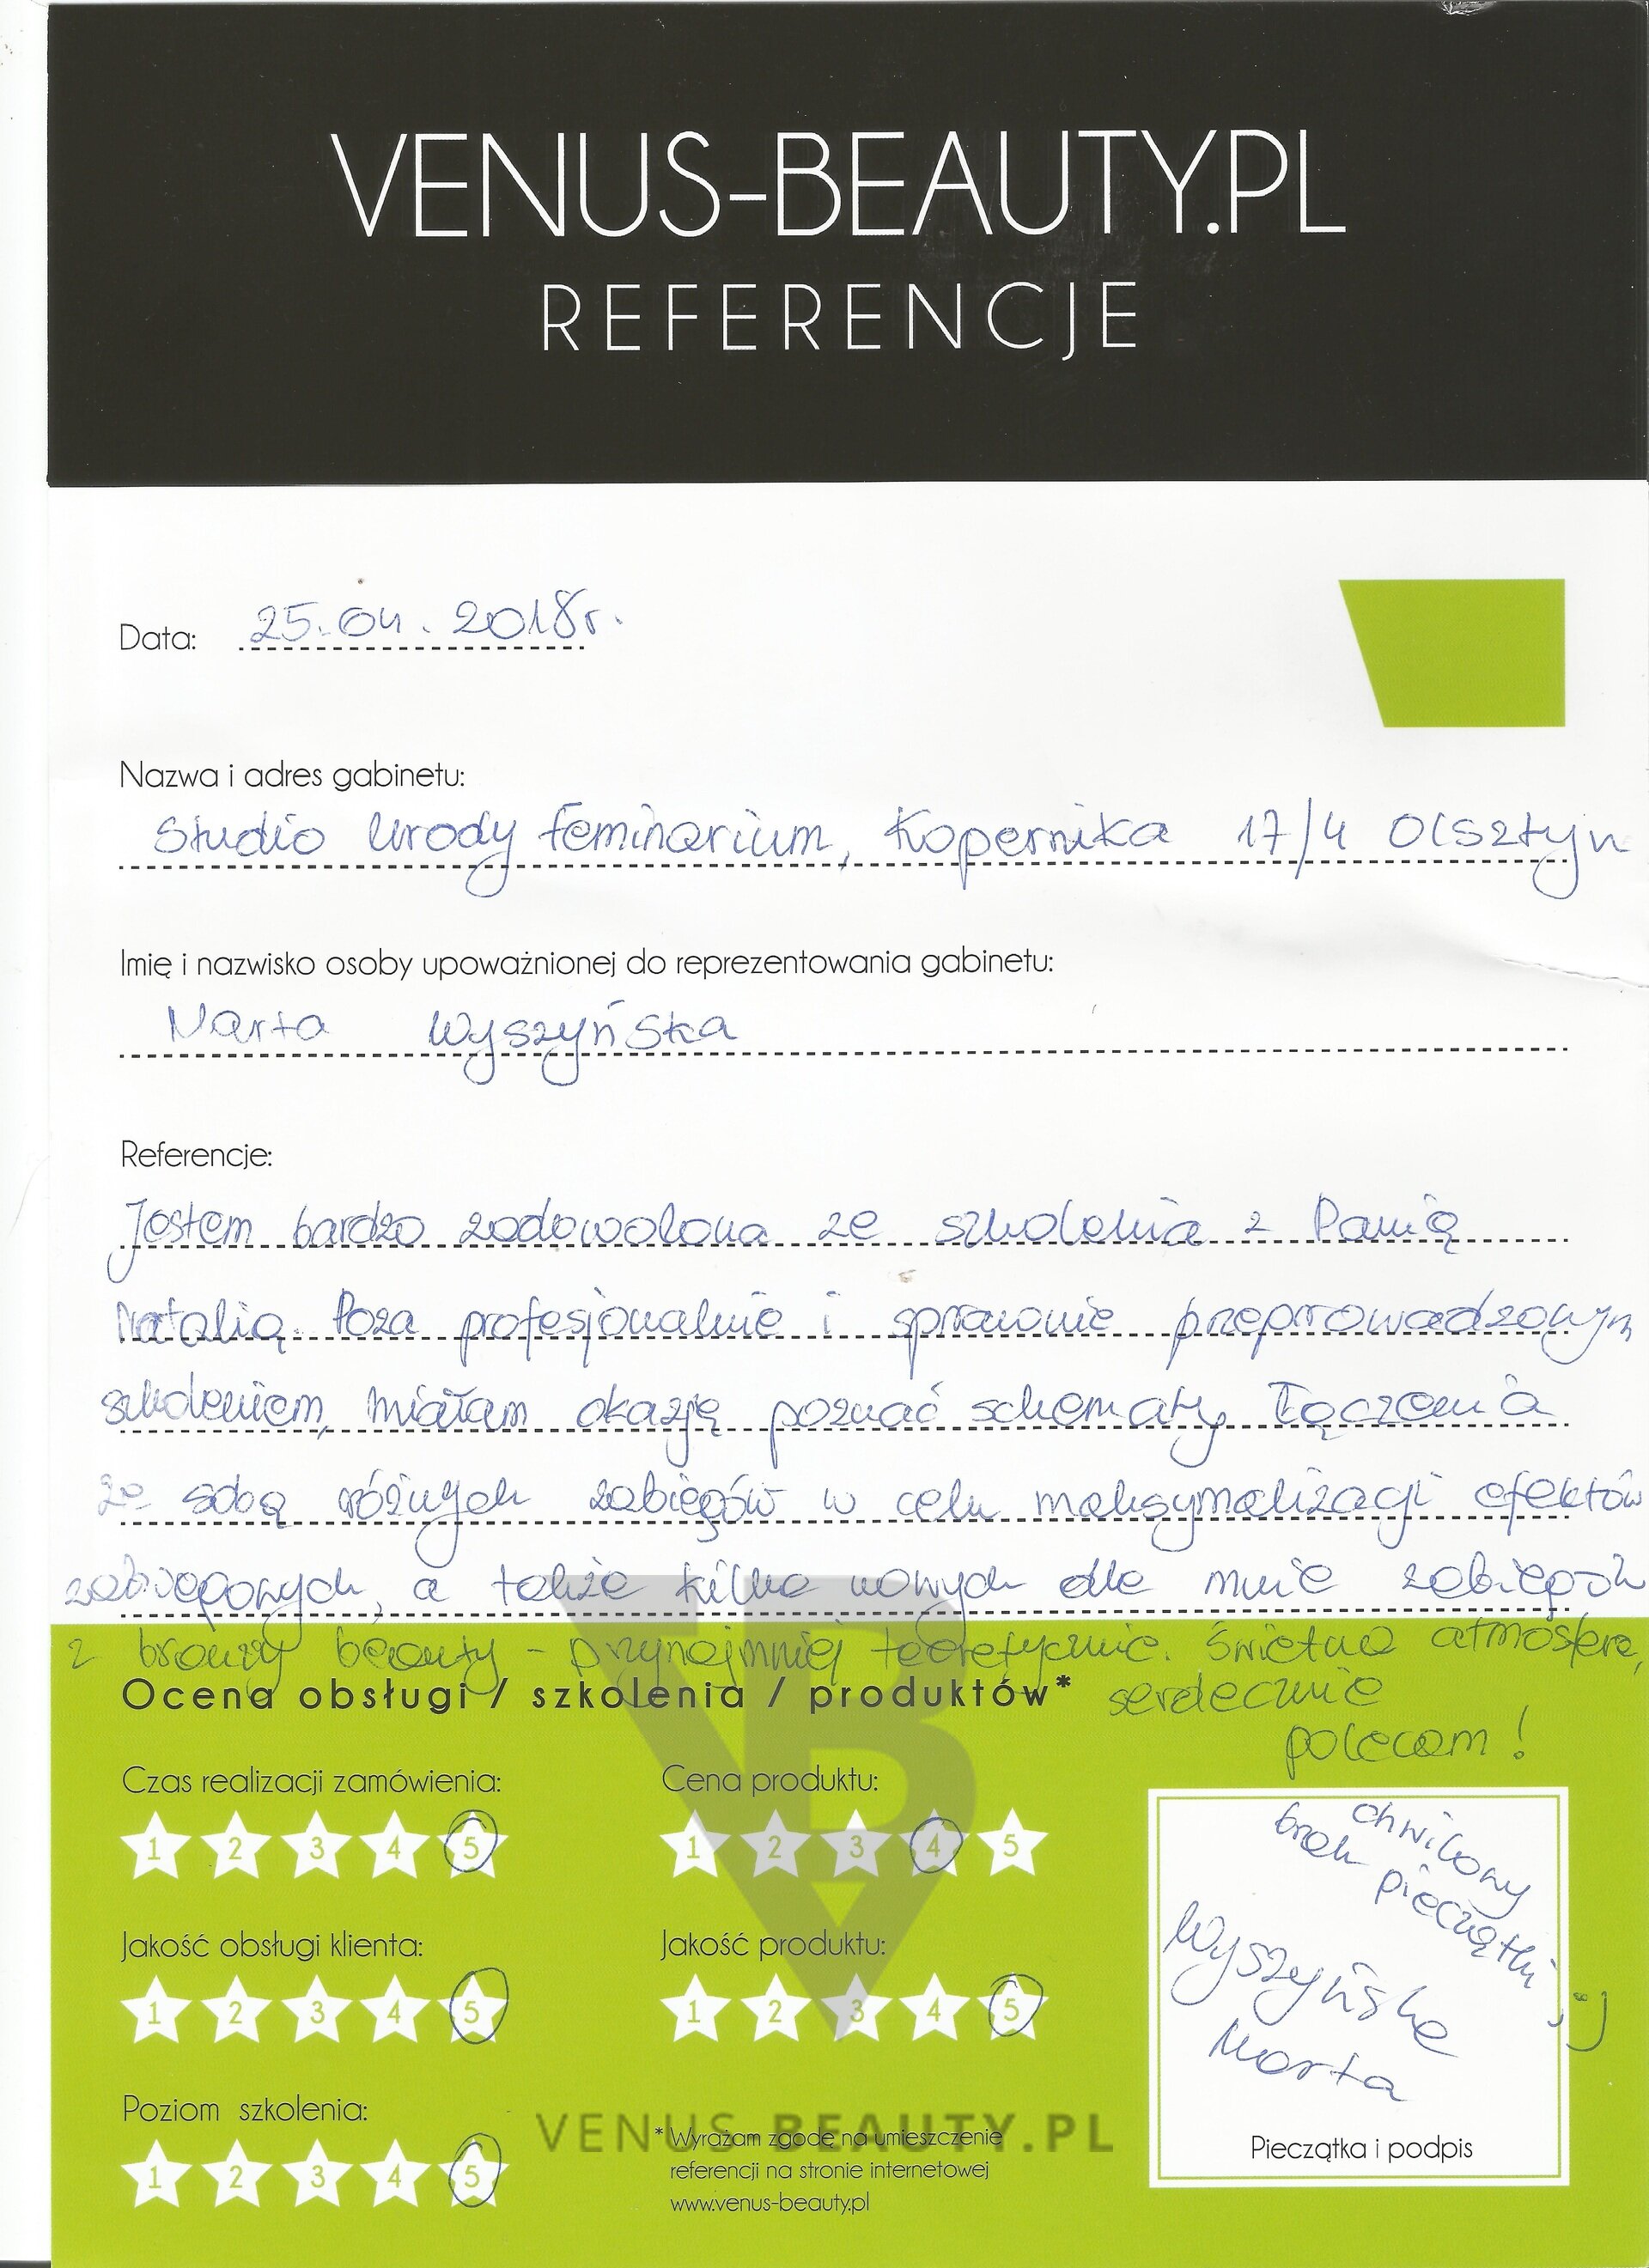 VENUS-BEAUTY.PL
REFERENCJE
Data: 25.04.2018r.
Nazwa i adres gabinetu:
Studio Urody Feminarium, Kopernika 17/4 Olsztyn
Imię i nazwisko osoby upoważnionej do reprezentowania gabinetu:
Marta Wyszyńska
Referencje:
Jestem bardzo zadowolona ze szkolenia z Panią
Natalią. Poza profesjonalnie i sprawnie przeprowadzonym
szkoleniem, miałam okazję poznać schematy łączenia
ze sobą różnych zabiegów w celu maksymalizacji efektów
zabiegowych, a także kilka nowych dla mnie zabiegów
z branży beauty - przynajmniej teoretycznie. Świetna atmosfera,
serdecznie
polecam!
Ocena obsługi / szkolenia / produktów*
Czas realizacji zamówienia:
1 2 3 4 5
Cena produktu:
1 2 3 4 5
Jakość obsługi klienta:
1 2 3 4 5
Jakość produktu:
1 2 3 4 5
Poziom szkolenia:
1 2 3 4 5
VENUS-BEAUTY.PL
* Wyrażam zgodę na umieszczenie
referencji na stronie internetowej
www.venus-beauty.pl
chwilowy
brak pieczątki ;)
Wyszyńska
Marta
Pieczątka i podpis